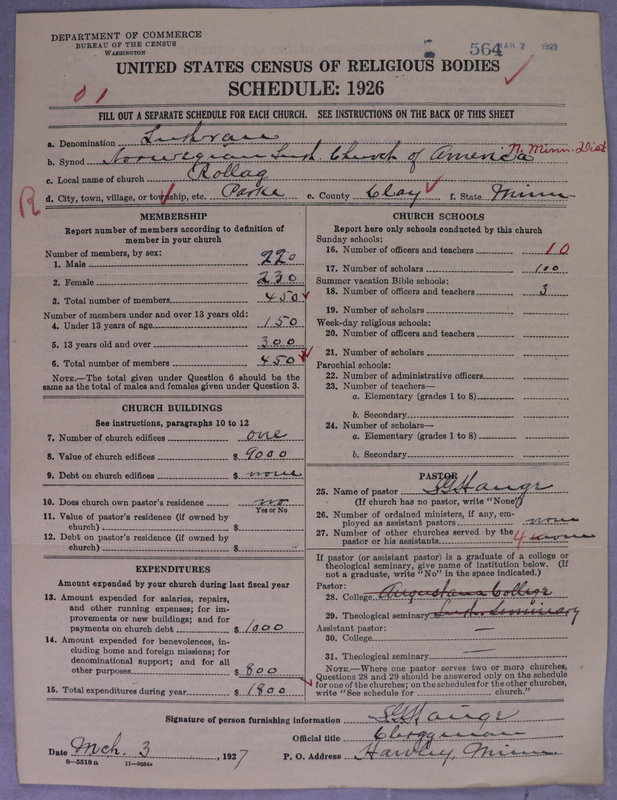 DEPARTMENT OF COMMERCE
BUREAU OF THE CENSUS
WASHINGTON
564 MAR 7 1927
UNITED STATES CENSUS OF RELIGIOUS BODIES
SCHEDULE: 1926
01
FILL OUT A SEPARATE SCHEDULE FOR EACH CHURCH. SEE INSTRUCTIONS ON THE BACK OF THIS SHEET
a. Denomination Lutheran
b. Synod Norwegian Luth. Church of America N. Minn. Dist
c. Local name of church Rollag
R
d. City, town, village, or township, etc. Parke e. County Clay f. State Minn
MEMBERSHIP
Report number of members according to definition of member in your church
Number of members, by sex:
1. Male 220
2. Female 230
3. Total number of members 450
Number of members under and over 13 years old:
4. Under 13 years of age 150
5. 13 years old and over 300
6. Total number of members 450
NOTE.—The total given under Question 6 should be the same as the total of males and females given under Question 3.
CHURCH BUILDINGS
See instructions, paragraphs 10 to 12
7. Number of church edifices one
8. Value of church edifices $ 9000
9. Debt on church edifices $ none
10. Does church own pastor's residence no
Yes or No
11. Value of pastor's residence (if owned by church) $
12. Debt on pastor's residence (if owned by church) $
EXPENDITURES
Amount expended by your church during last fiscal year
13. Amount expended for salaries, repairs, and other running expenses; for improvements or new buildings; and for payments on church debt $ 1000
14. Amount expended for benevolences, including home and foreign missions; for denominational support; and for all other purposes $ 800
15. Total expenditures during year $ 1800
CHURCH SCHOOLS
Report here only schools conducted by this church
Sunday schools:
16. Number of officers and teachers 10
17. Number of scholars 100
Summer vacation Bible schools:
18. Number of officers and teachers 3
19. Number of scholars
Week-day religious schools:
20. Number of officers and teachers
21. Number of scholars
Parochial schools:
22. Number of administrative officers
23. Number of teachers—
a. Elementary (grades 1 to 8)
b. Secondary
24. Number of scholars—
a. Elementary (grades 1 to 8)
b. Secondary
PASTOR
25. Name of pastor S G Hauge
(If church has no pastor, write "None")
26. Number of ordained ministers, if any, employed as assistant pastors none
27. Number of other churches served by the pastor or his assistants 4 none
If pastor (or assistant pastor) is a graduate of a college or theological seminary, give name of institution below. (If not a graduate, write "No" in the space indicated.)
Pastor:
28. College Augustana College
29. Theological seminary Luth. Seminary
Assistant pastor:
30. College —
31. Theological seminary —
NOTE.—Where one pastor serves two or more churches, Questions 28 and 29 should be answered only on the schedule for one of the churches; on the schedules for the other churches, write "See schedule for church."
Signature of person furnishing information S G Hauge
Official title Clergyman
Date Mch. 3, 1927 P. O. Address Hawley, Minn.
8—5518a 11—9054